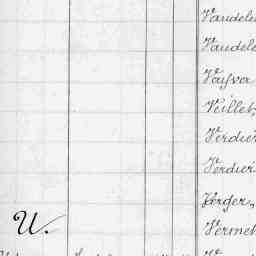 Vandele
Vandele
Vayva
Veillet,
Verdier
Verdier
Verger,
Vermet
U.